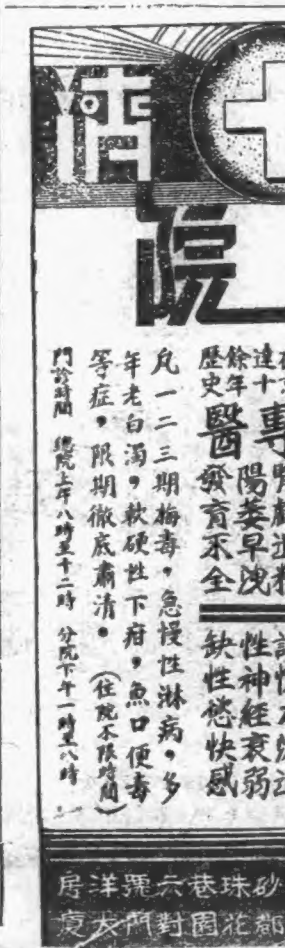 院
達十
餘年
歷史
專
醫
陽萎早洩
發育不全
性神經衰弱
缺性慾快感
凡一二三期梅毒，急慢性淋病，多
年老白濁，軟硬性下疳，魚口便毒
等症，限期徹底肅清。（住院不限時間）
門診時間 總院上午八時至十二時 分院下午一時至八時
砂珠巷六號洋房
都花園對門大廈